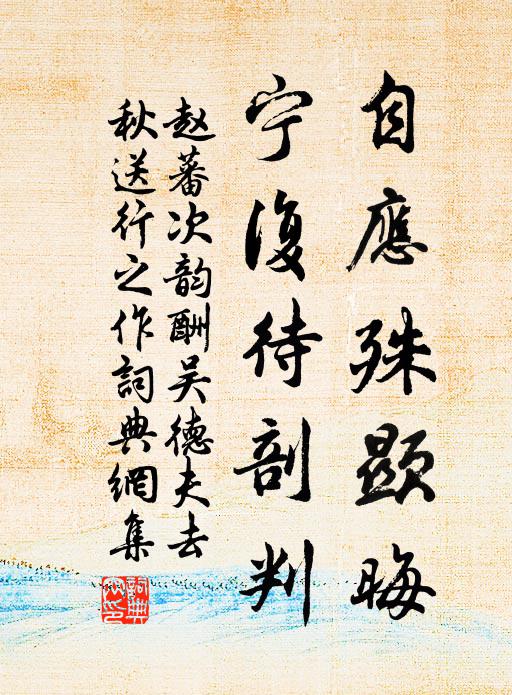 自應殊顯晦
宁復待剖判
赵蕃次韵酬吴德夫去
秋送行之作詞典網集